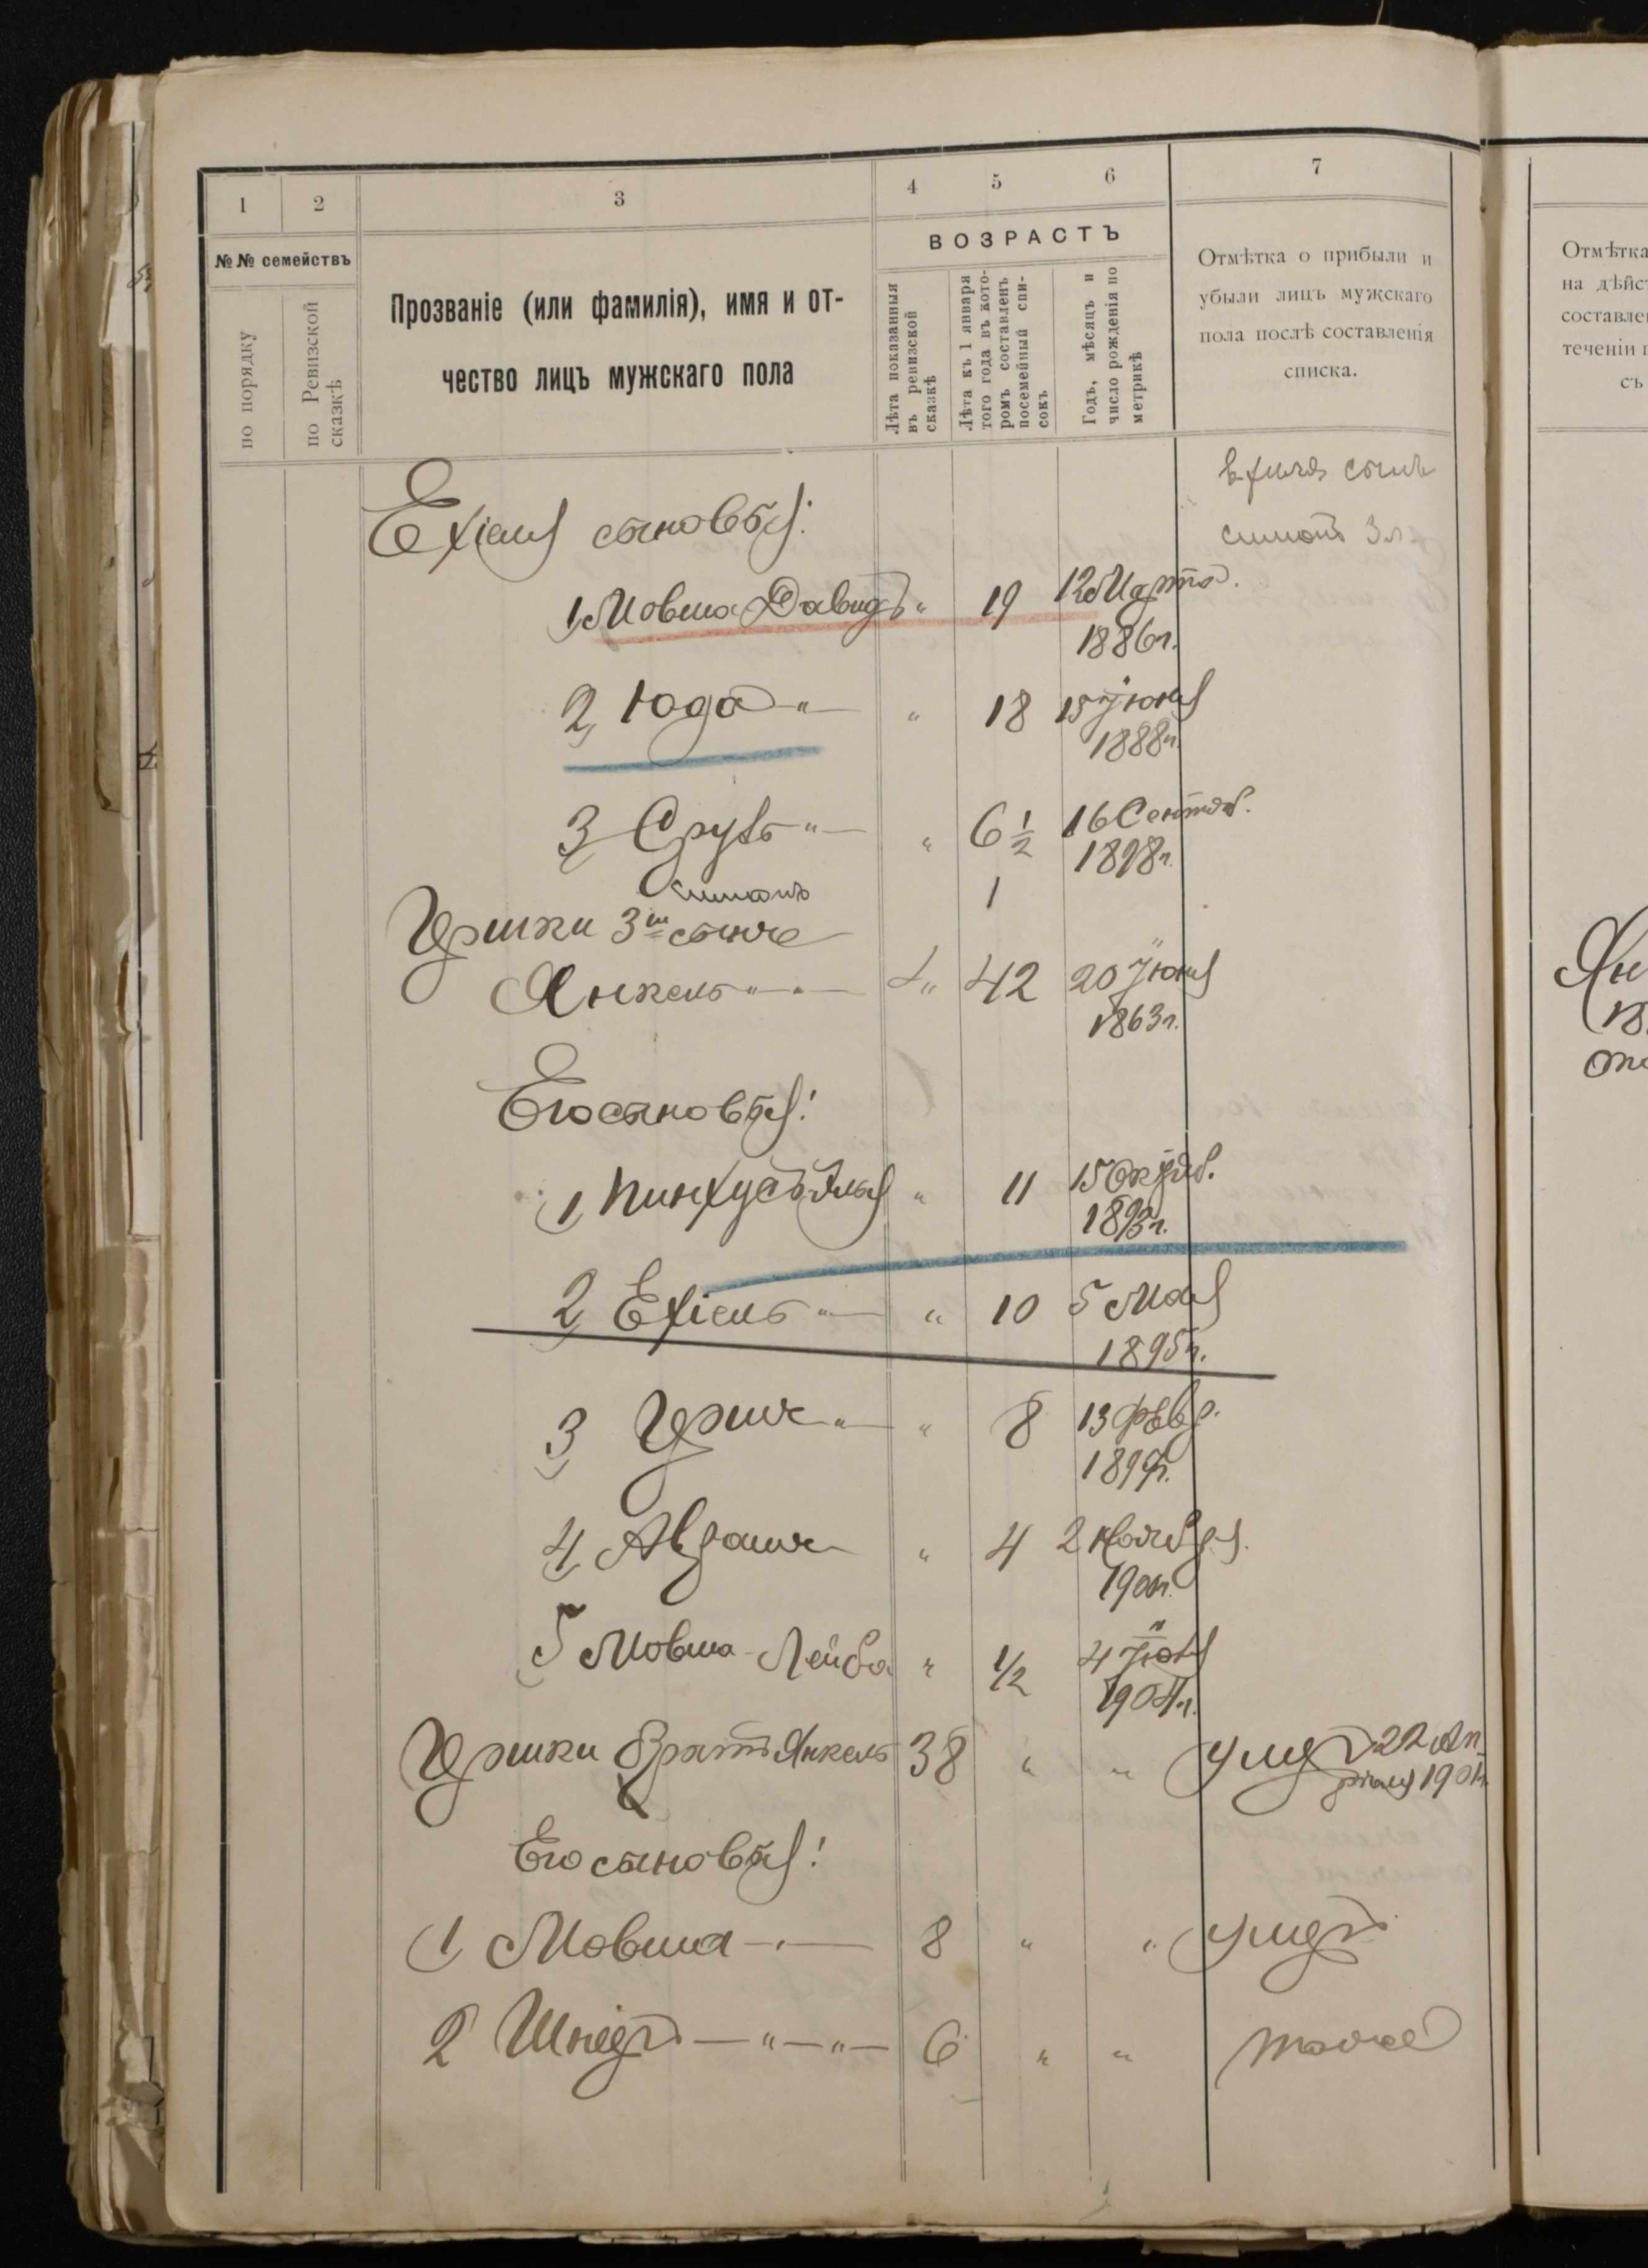 1 2 3 4 5 6 7
№№ семействъ
по порядку
по Ревизской сказкѣ
Прозваніе (или фамилія), имя и от-
чество лицъ мужскаго пола
ВОЗРАСТЪ
Лѣта показанныя
въ ревизской
сказкѣ
Лѣта къ 1 января
того года въ кото-
ромъ составленъ
посемейный спи-
сокъ
Годъ, мѣсяцъ и
число рожденія по
метрикѣ
Отмѣтка о прибыли и
убыли лицъ мужскаго
пола послѣ составленія
списка.
Отмѣтка
на дѣйс
составле
теченіи
съ
сынъ
Ехіеля сыновья:
1, Мовша Давидъ " 19 12 Марта
1886 г.
2, Юда " — " 18 15 Іюня
1888 г.
3, Сруль " — " 6 1/2 16 Сентяб.
1898 г.
1
Иршки 3й сынъ
Янкель " — " — 4 " 42 20 Іюня
1863 г.
Его сыновья:
1, Пинхусъ Эля " 11 15 Октяб.
1893 г.
2, Ехіель " — " 10 5 Мая
1895 г.
3, Иршъ " — " 8 13 Февр.
1897 г.
4, Абрамъ " 4 2 Ноября
190 г.
5, Мовша-Лейба " 1/2 4 Іюля
1904 г.
Иршки братъ Янкель 38 " " умеръ 22 Ап
рѣля 190 г.
Его сыновья:
1, Мовша — " — 8 " " умеръ
2, Шнеръ — " — " — 6 " " тоже
Ян
18